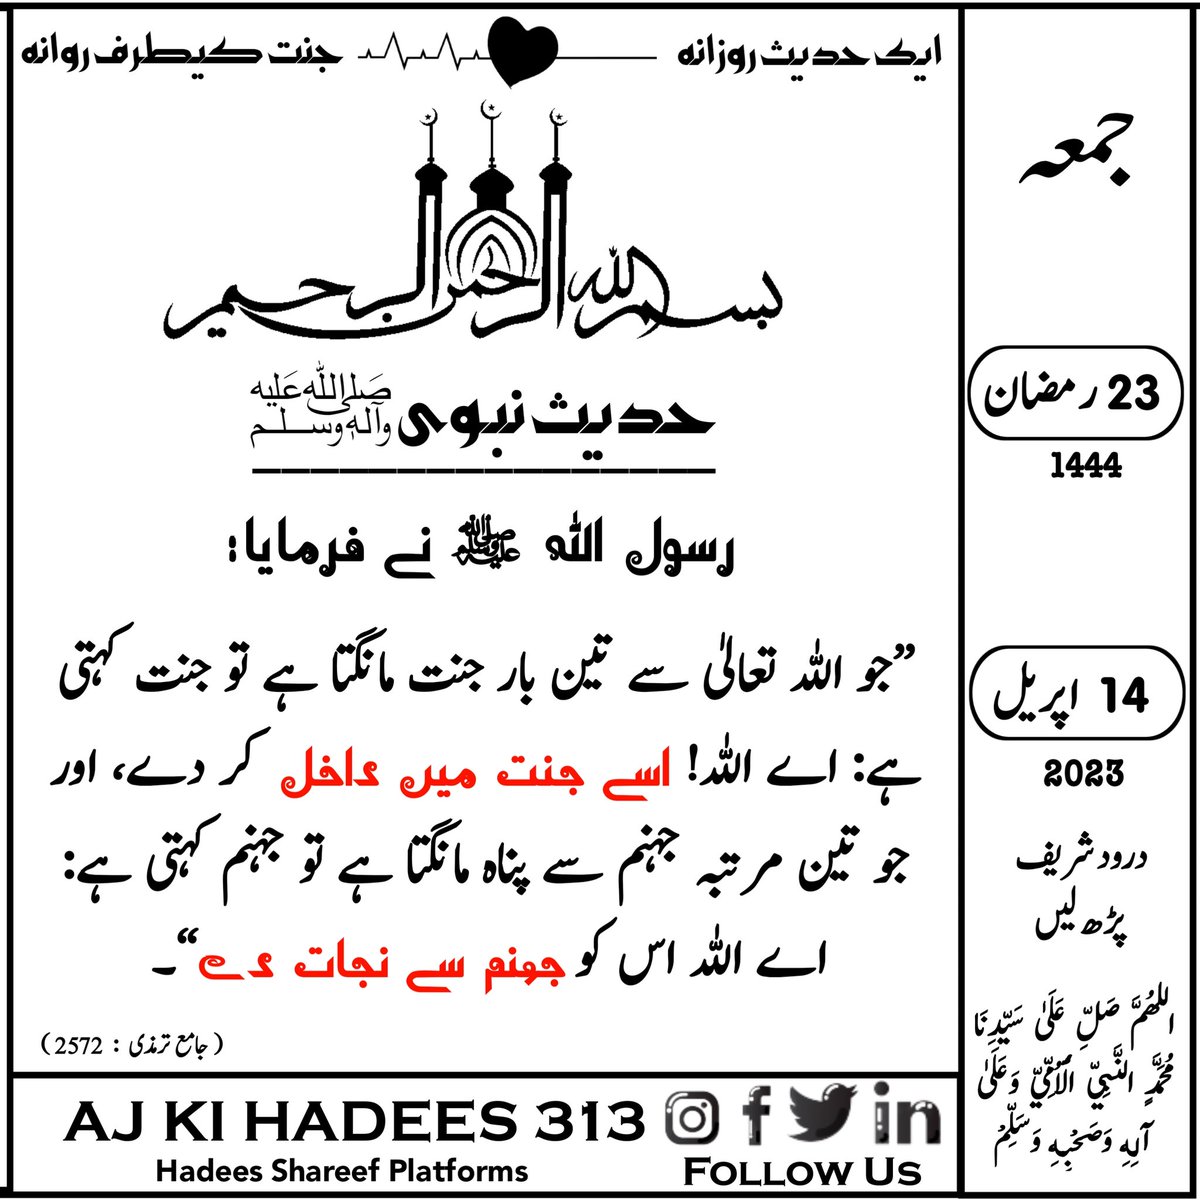 ایک حدیث روزانہ
جنت کیطرف روانہ
بسم اللہ الرحمن الرحیم
حدیث نبوی صَلَّی اللہُ عَلَیْہِ وَآلِہٖ وَسَلَّم
رسول اللہ ﷺ نے فرمایا:
”جو اللہ تعالیٰ سے تین بار جنت مانگتا ہے تو جنت کہتی
ہے: اے اللہ! اسے جنت میں داخل کر دے، اور
جو تین مرتبہ جہنم سے پناہ مانگتا ہے تو جہنم کہتی ہے:
اے اللہ اس کو جہنم سے نجات دے“۔
(جامع ترمذی : 2572)
جمعہ
23 رمضان
1444
14 اپریل
2023
درود شریف
پڑھ لیں
اللھُمَّ صَلِّ عَلَیٰ سَیِّدِنَا
مُحَمَّدٍ النَّبِيِّ الْأُمِّيِّ وَعَلَیٰ
آلِهِ وَصَحْبِهِ وَسَلِّمْ
AJ KI HADEES 313
Hadees Shareef Platforms
FOLLOW US